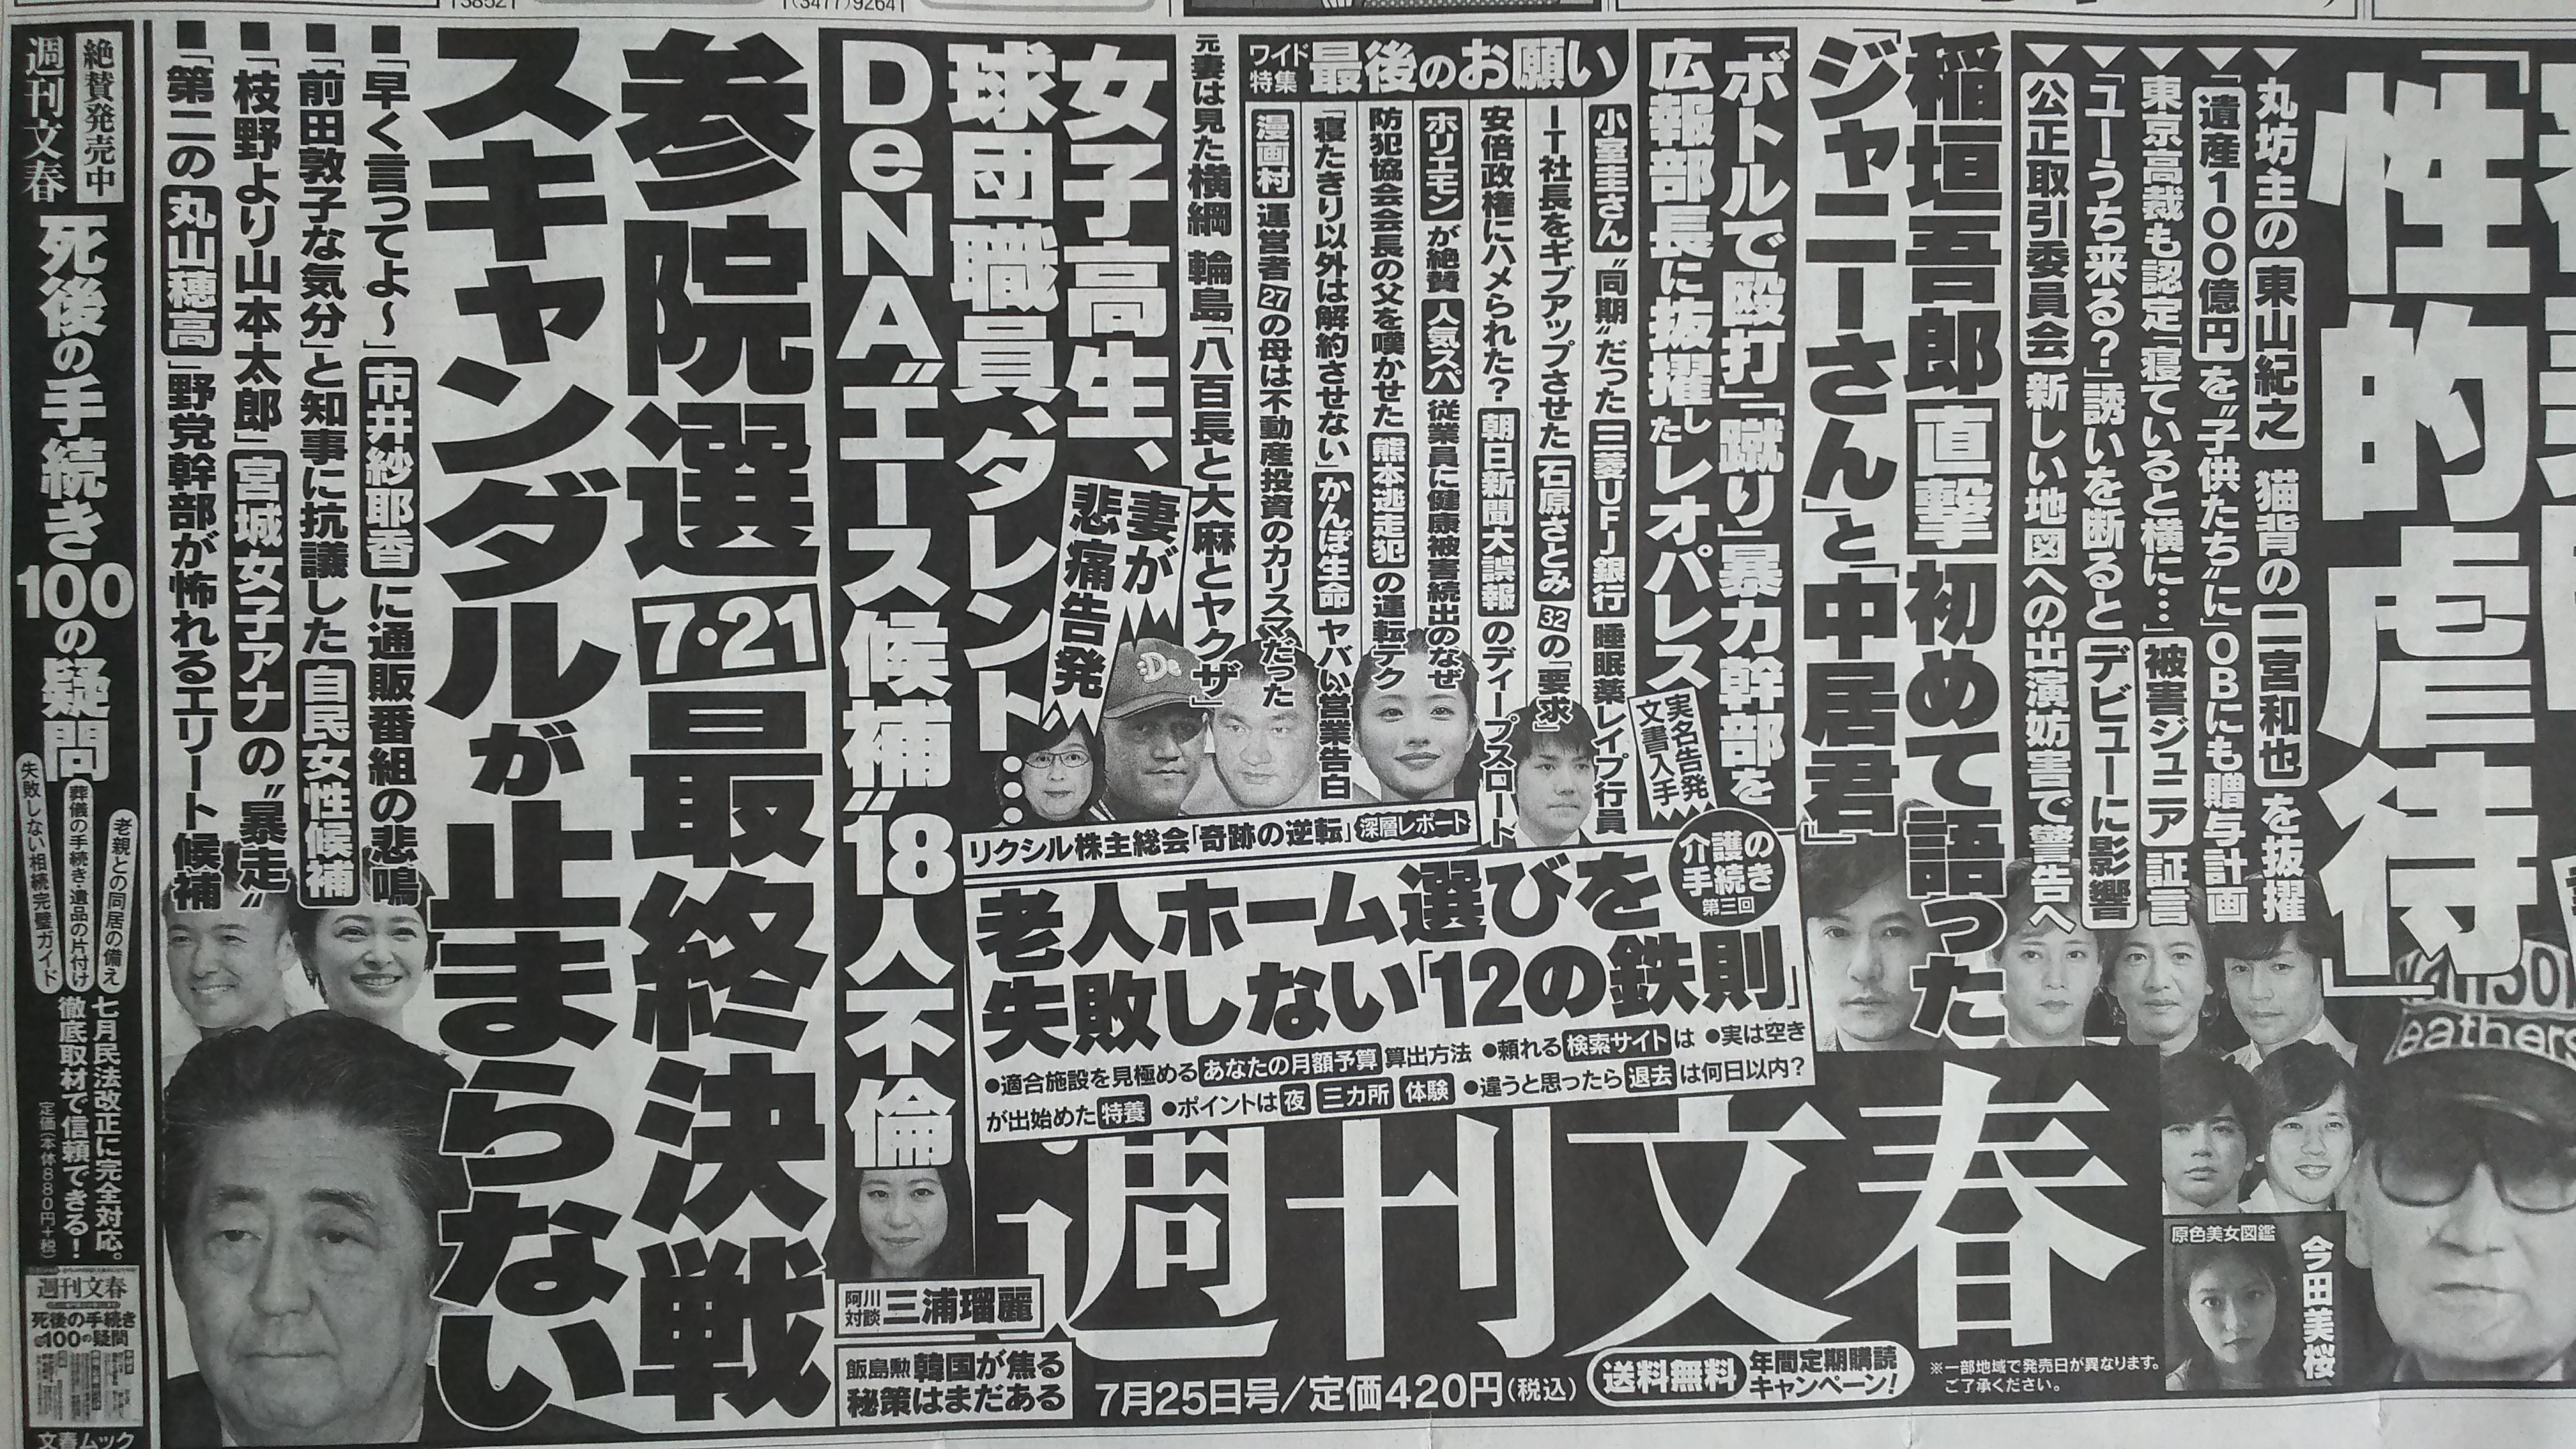 「性的虐待」
▼丸坊主の東山紀之 猫背の二宮和也を抜擢
▼「遺産100億円を〝子供たち〟に」OBにも贈与計画
東京高裁も認定「寝ていると横に…」被害ジュニア証言
▼「ユーうち来る?」誘いを断るとデビューに影響
▼公正取引委員会 新しい地図への出演妨害で警告へ
稲垣吾郎 直撃 初めて語った
「ジャニーさん」と「中居君」
「ボトルで殴打」「蹴り」暴力幹部を
広報部長に抜擢したレオパレス
実名告発
文書入手
ワイド特集 最後のお願い
小室圭さん〝同期〟だった三菱UFJ銀行 睡眠薬レイプ行員
IT社長をギブアップさせた石原さとみ32の「要求」
安倍政権にハメられた? 朝日新聞大誤報のディープスロート
ホリエモンが絶賛 人気スパ 従業員に健康被害続出のなぜ
防犯協会会長の父を嘆かせた熊本逃走犯の運転テク
「寝たきり以外は解約させない」かんぽ生命 ヤバい営業告白
漫画村 運営者27の母は不動産投資のカリスマだった
元妻は見た横綱 輪島「八百長と大麻とヤクザ」
女子高生、
球団職員、タレント……
妻が
悲痛告発
DeNA〝エース候補〟18人不倫
リクシル株主総会「奇跡の逆転」深層レポート
介護の
手続き
第三回
老人ホーム選びを
失敗しない「12の鉄則」
●適合施設を見極めるあなたの月額予算算出方法 ●頼れる検索サイトは ●実は空き
が出始めた特養 ●ポイントは夜 三カ所 体験 ●違うと思ったら退去は何日以内?
参院選 7・21 最終決戦
スキャンダルが止まらない
■「早く言ってよ〜」市井紗耶香に通販番組の悲鳴
■「前田敦子な気分」と知事に抗議した自民女性候補
■「枝野より山本太郎」宮城女子アナの〝暴走〟
■「第二の丸山穂高」野党幹部が怖れるエリート候補
阿川
対談 三浦瑠麗
飯島勲 韓国が焦る
秘策はまだある
週刊文春
7月25日号/定価420円(税込)
送料無料 年間定期購読
キャンペーン!
※一部地域で発売日が異なります。
ご了承ください。
原色美女図鑑
今田美桜
絶賛発売中
週刊文春
死後の手続き100の疑問
老親との同居の備え
葬儀の手続き・遺品の片付け
失敗しない相続完璧ガイド
七月民法改正に完全対応。
徹底取材で信頼できる!
定価(本体880円+税)
週刊文春
死後の手続き
100の疑問
文春ムック